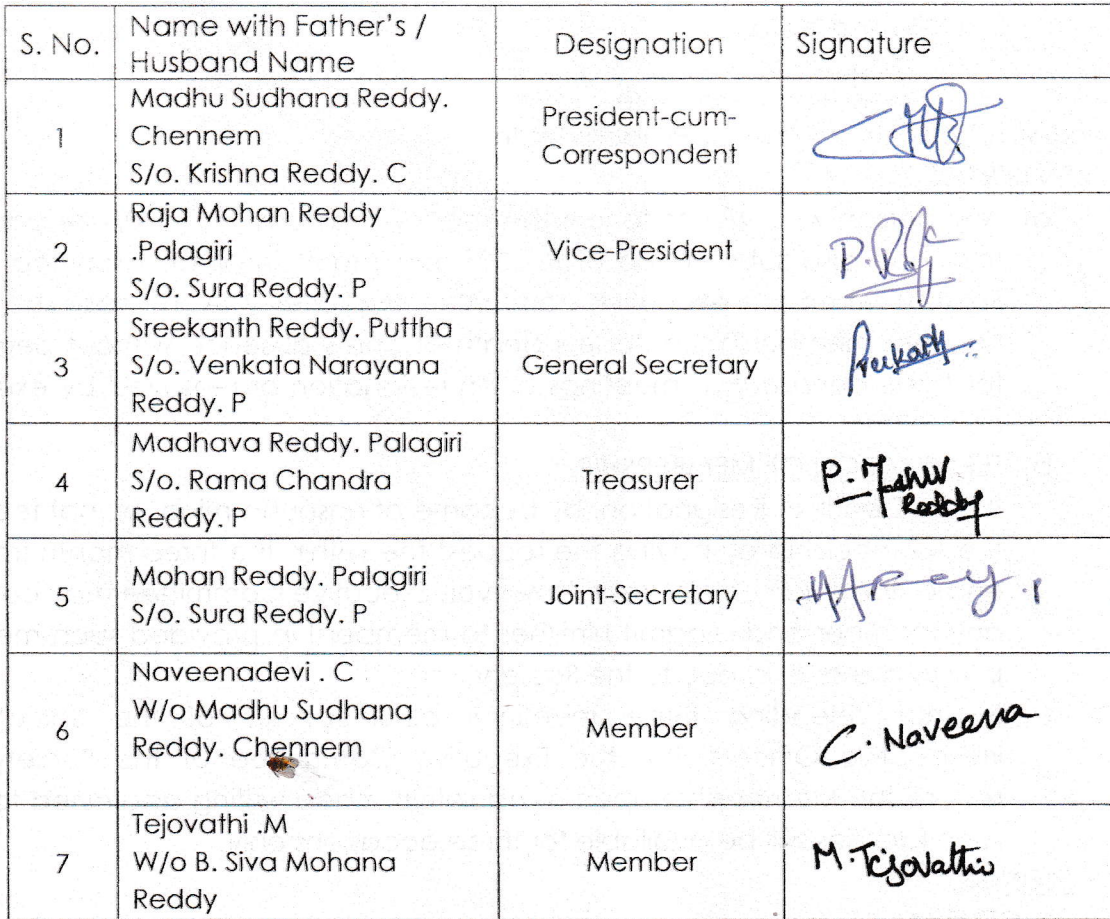 S. No.
Name with Father's /
Husband Name
Designation
Signature
1
Madhu Sudhana Reddy.
Chennem
S/o. Krishna Reddy. C
President-cum-
Correspondent
2
Raja Mohan Reddy
.Palagiri
S/o. Sura Reddy. P
Vice-President
3
Sreekanth Reddy. Puttha
S/o. Venkata Narayana
Reddy. P
General Secretary
4
Madhava Reddy. Palagiri
S/o. Rama Chandra
Reddy. P
Treasurer
Reddy
5
Mohan Reddy. Palagiri
S/o. Sura Reddy. P
Joint-Secretary
6
Naveenadevi . C
W/o Madhu Sudhana
Reddy. Chennem
Member
C. Naveena
7
Tejovathi .M
W/o B. Siva Mohana
Reddy
Member
M. Tejovathi